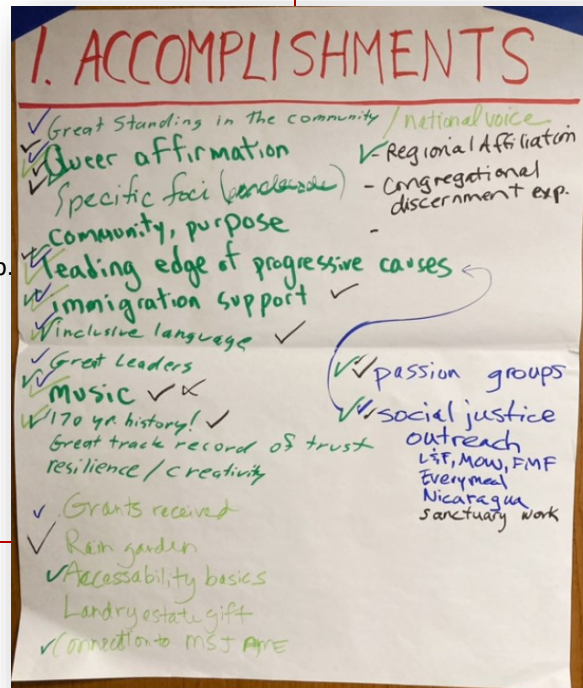 1. ACCOMPLISHMENTS
Great Standing in the community / national voice
Queer affirmation
Specific foci
Community, purpose
leading edge of progressive causes
immigration support
inclusive language
Great Leaders
Music
170 yr. history!
Great track record of trust
resilience/creativity
Grants received
Rain garden
Accessability basics
Landry estate gift
Connection to MSJ
- Regional Affiliation
- Congregational
discernment exp.
-
passion groups
social justice
outreach
L&F, MOW, FMF
Every meal
Nicaragua
sanctuary work